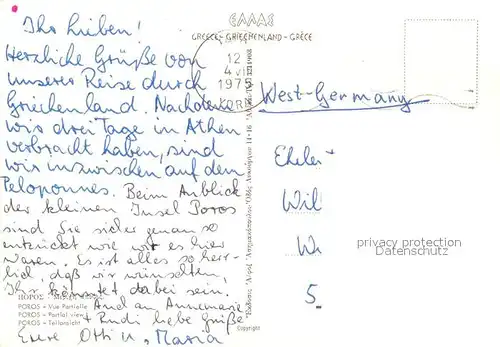 Ihr Lieben!
Herzliche Grüße von
unserer Reise durch
Griechenland. Nachdem
wir drei Tage in Athen
verbracht haben, sind
wir inzwischen auf dem
Peloponnes. Beim Anblick
der kleinen Insel Poros
sind Sie sicher genau so
entzückt wie wir es hier
waren. Es ist alles so herr-
lich, daß wir wünschten,
Ihr könntet dabei sein.
Auch an Annemarie
+ Rudi liebe Grüße
Eure Otti u. Maria
ΠΟΡΟΣ
POROS – Vue Partielle
POROS – Partial view
POROS – Teilansicht
ΕΛΛΑΣ
GREECE - GRIECHENLAND - GRÈCE
12
1975
West-Germany
Wil
5
Copyright
privacy protection
Datenschutz